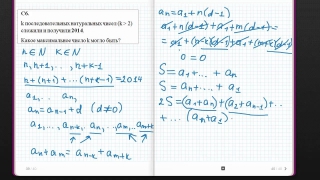 C6.
k последовательных натуральных чисел (k > 2)
сложили и получили 2014.
Какое максимальное число k могло быть?
n∈N K∈N
n, n+1, ..., n+k-1
n+(n+1)+...(n+k-1)=2014
a₁, .. aₙ
aₙ=aₙ₋₁+d (d≠0)
a₁,..., aₙ₋ₖ,.. aₙ,.. aₘ,.. aₘ₊ₖ
aₙ+aₘ=aₙ₋ₖ+aₘ₊ₖ
aₙ=a₁+n(d-1)
S=a₁+...+aₙ
S=aₙ+...+a₁
2S=(a₁+aₙ)+(a₂+aₙ₋₁)+..
+... (aₙ+a₁)